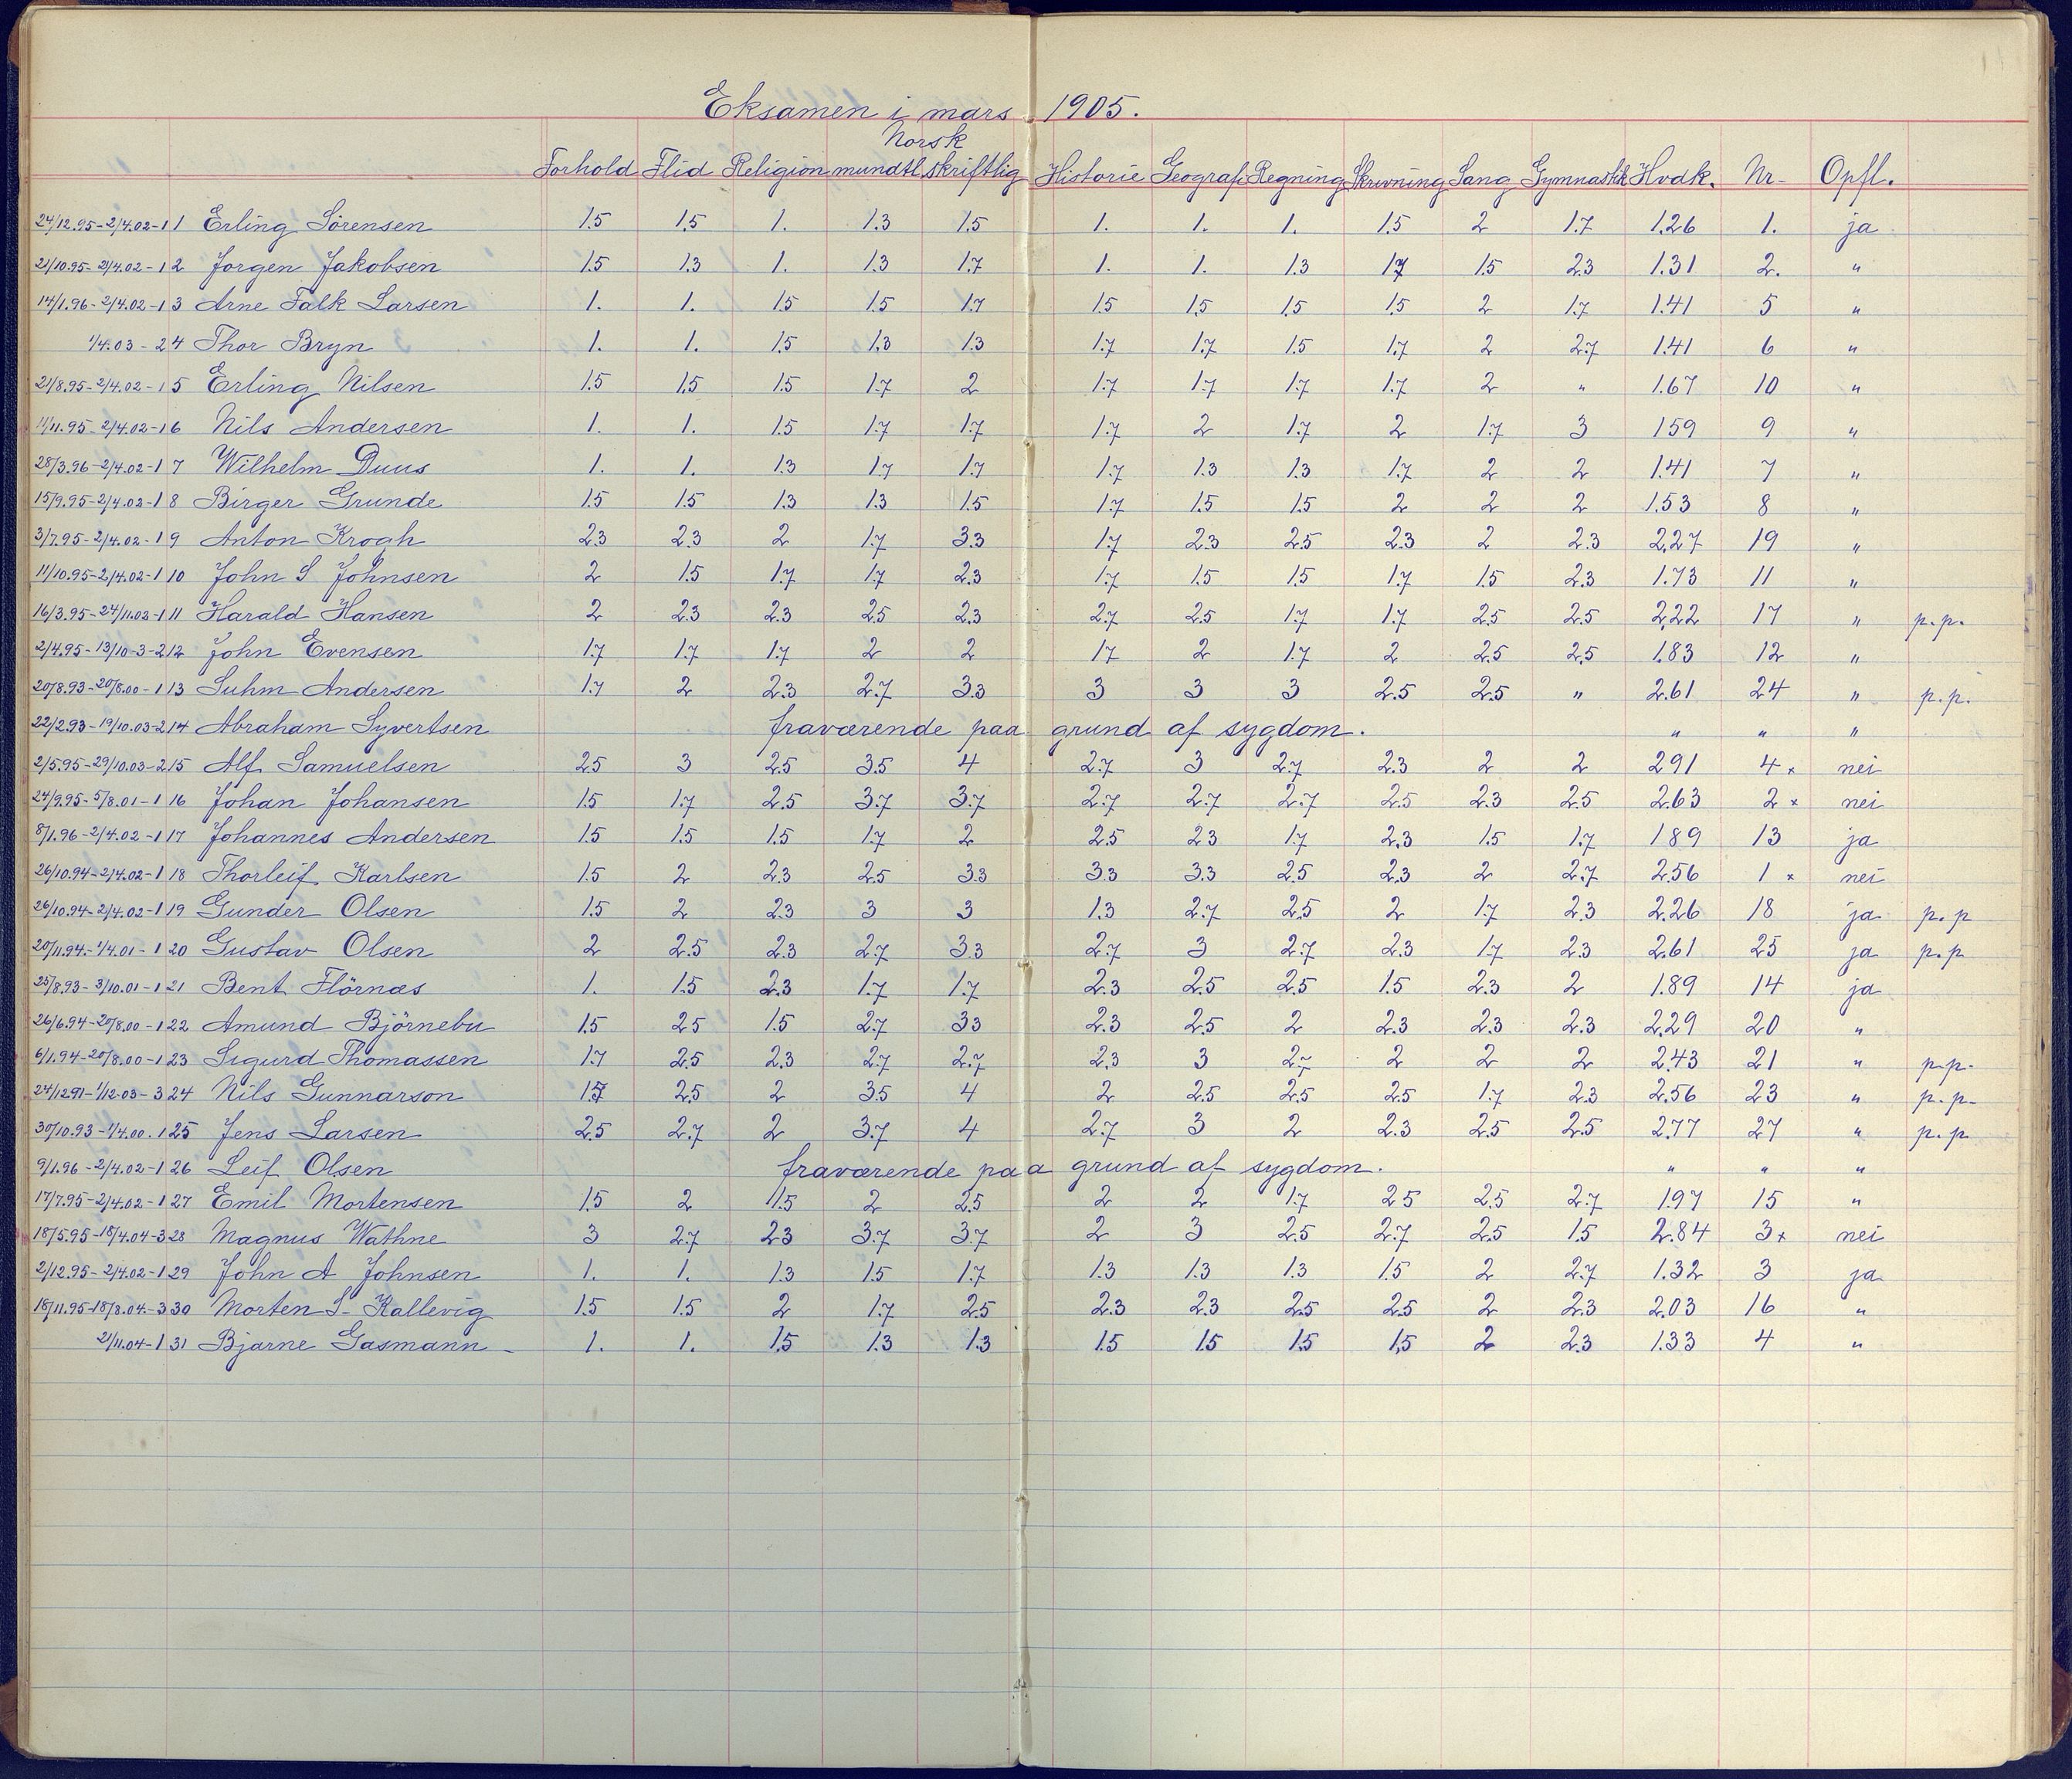 Eksamen i mars 1905.
Norsk
Forhold Flid Religion mundtl. skriftlig Historie Geografi Regning Skrivning Sang Gymnastik Hvdk. Nr. Opfl.
24/12.95-2/4.02-1 1 Erling Sörensen 1.5 1.5 1. 1.3 1.5 1. 1. 1. 1.5 2 1.7 1.26 1. ja
21/10.95-2/4.02-1 2 Jörgen Jakobsen 1.5 1.3 1. 1.3 1.7 1. 1. 1.3 1.7 1.5 2.3 1.31 2. "
14/1.96-2/4.02-1 3 Arne Falk Larsen 1. 1. 1.5 1.5 1.7 1.5 1.5 1.5 1.5 2 1.7 1.41 5 "
1/4.03-2 4 Thor Bryn 1. 1. 1.5 1.3 1.3 1.7 1.7 1.5 1.7 2 2.7 1.41 6 "
21/8.95-2/4.02-1 5 Erling Nilsen 1.5 1.5 1.5 1.7 2 1.7 1.7 1.7 1.7 2 " 1.67 10 "
11/11.95-2/4.02-1 6 Nils Andersen 1. 1. 1.5 1.7 1.7 1.7 2 1.7 2 1.7 3 1.59 9 "
28/3.96-2/4.02-1 7 Wilhelm Duus 1. 1. 1.3 1.7 1.7 1.7 1.3 1.3 1.7 2 2 1.41 7 "
15/9.95-2/4.02-1 8 Birger Grunde 1.5 1.5 1.3 1.3 1.5 1.7 1.5 1.5 2 2 2 1.53 8 "
3/7.95-2/4.02-1 9 Anton Krogh 2.3 2.3 2 1.7 3.3 1.7 2.3 2.5 2.3 2 2.3 2.27 19 "
11/10.95-2/4.02-1 10 John S Johnsen 2 1.5 1.7 1.7 2.3 1.7 1.5 1.5 1.7 1.5 2.3 1.73 11 "
16/3.95-24/11.03-1 11 Harald Hansen 2 2.3 2.3 2.5 2.3 2.7 2.5 1.7 1.7 2.5 2.5 2.22 17 " p.p.
2/4.95-13/10-3-2 12 John Evensen 1.7 1.7 1.7 2 2 1.7 2 1.7 2 2.5 2.5 1.83 12 "
20/8.93-20/8.00-1 13 Suhm Andersen 1.7 2 2.3 2.7 3.3 3 3 3 2.5 2.5 " 2.61 24 " p.p.
22/2.93-19/10.03-2 14 Abraham Syvertsen fraværende paa grund af sygdom. " " "
2/5.95-29/10.03-2 15 Alf Samuelsen 2.5 3 2.5 3.5 4 2.7 3 2.7 2.3 2 2 2.91 4 x nei
24/9.95-5/8.01-1 16 Johan Johansen 1.5 1.7 2.5 3.7 3.7 2.7 2.7 2.7 2.5 2.3 2.5 2.63 2 x nei
8/1.96-2/4.02-1 17 Johannes Andersen 1.5 1.5 1.5 1.7 2 2.5 2.3 1.7 2.3 1.5 1.7 1.89 13 ja
26/10.94-2/4.02-1 18 Thorleif Karlsen 1.5 2 2.3 2.5 3.3 3.3 3.3 2.5 2.3 2 2.7 2.56 1 x nei
26/10.94-2/4.02-1 19 Gunder Olsen 1.5 2 2.3 3 3 1.3 2.7 2.5 2 1.7 2.3 2.26 18 ja p.p
20/11.94-1/4.01-1 20 Gustav Olsen 2 2.5 2.3 2.7 3.3 2.7 3 2.7 2.3 1.7 2.3 2.61 25 ja p.p
25/8.93-3/10.01-1 21 Bent Flörnæs 1. 1.5 2.3 1.7 1.7 2.3 2.5 2.5 1.5 2.3 2 1.89 14 ja
26/6.94-20/8.00-1 22 Amund Björnebu 1.5 2.5 1.5 2.7 3.3 2.3 2.5 2 2.3 2.3 2.3 2.29 20 "
6/1.94-20/8.00-1 23 Sigurd Thomassen 1.7 2.5 2.3 2.7 2.7 2.3 3 2.7 2 2 2 2.43 21 " p.p.
24/12.91-1/12-03-3 24 Nils Gunnarson 1.7 2.5 2 3.5 4 2 2.5 2.5 2.5 1.7 2.3 2.56 23 " p.p.
30/10.93-1/4.00.1 25 Jens Larsen 2.5 2.7 2 3.7 4 2.7 3 2 2.3 2.5 2.5 2.77 27 " p.p
9/1.96-2/4.02-1 26 Leif Olsen fraværende paa grund af sygdom. " " "
17/7.95-2/4.02-1 27 Emil Mortensen 1.5 2 1.5 2 2.5 2 2 1.7 2.5 2.5 2.7 1.97 15 "
18/5.95-18/4.04-3 28 Magnus Wathne 3 2.7 2.3 3.7 3.7 2 3 2.5 2.7 2.5 1.5 2.84 3 x nei
2/12.95-2/4.02-1 29 John A Johnsen 1. 1. 1.3 1.5 1.7 1.3 1.3 1.3 1.5 2 2.7 1.32 3 ja
18/11.95-18/8.04-3 30 Morten S. Kallevig 1.5 1.5 2 1.7 2.5 2.3 2.3 2.5 2.5 2 2.3 2.03 16 "
21/11.04-1 31 Bjarne Gasmann 1. 1. 1.5 1.3 1.3 1.5 1.5 1.5 1.5 2 2.3 1.33 4 "